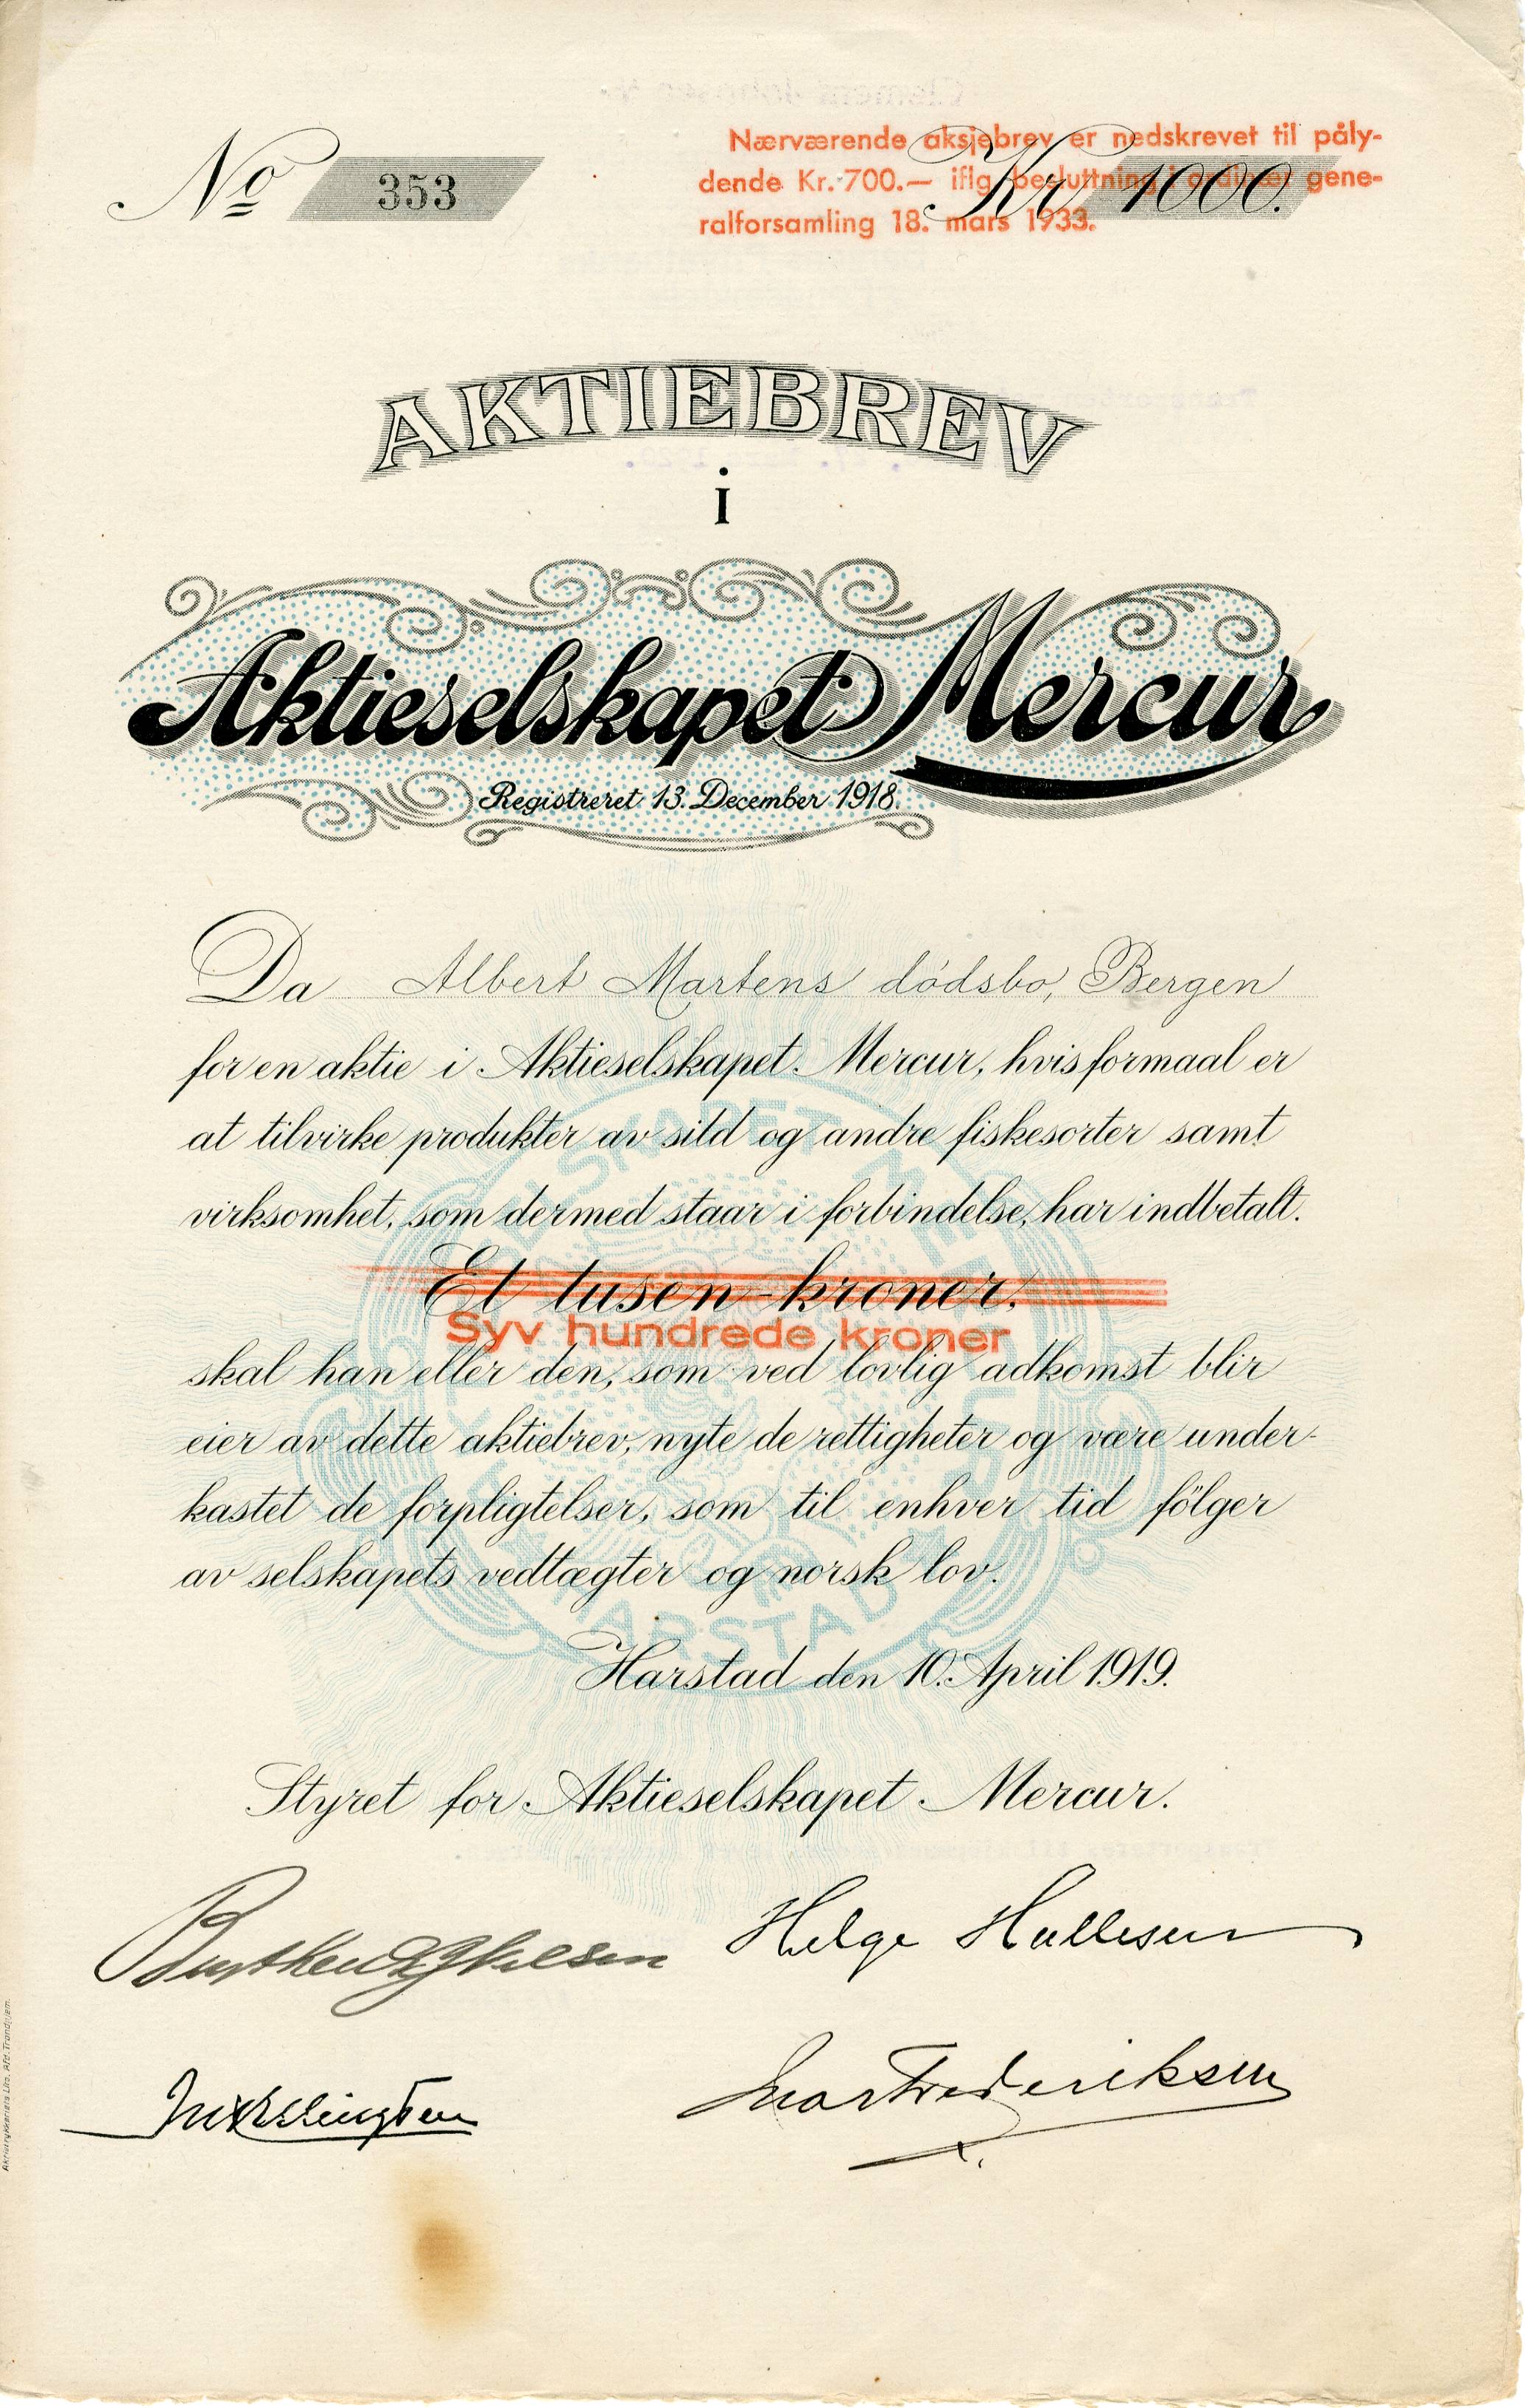 No 353
Kr 1000.
Nærværende aksjebrev er nedskrevet til påly-
dende Kr. 700.— iflg. besluttning i ordinær gene-
ralforsamling 18. mars 1933.
AKTIEBREV
i
Aktieselskapet Mercur
Registreret 13. December 1918.
Da Albert Martens dödsbo, Bergen
for en aktie i Aktieselskapet Mercur, hvis formaal er
at tilvirke produkter av sild og andre fiskesorter samt
virksomhet, som dermed staar i forbindelse, har indbetalt
Et tusen-kroner.
Syv hundrede kroner
skal han eller den, som ved lovlig adkomst blir
eier av dette aktiebrev, nyte de rettigheter og være under-
kastet de forpligtelser, som til enhver tid fölger
av selskapets vedtægter og norsk lov.
AKTIESELSKAPET MERCUR
HARSTAD
Harstad den 10. April 1919.
Styret for Aktieselskapet Mercur.
Helge Hallesen
Frederiksen